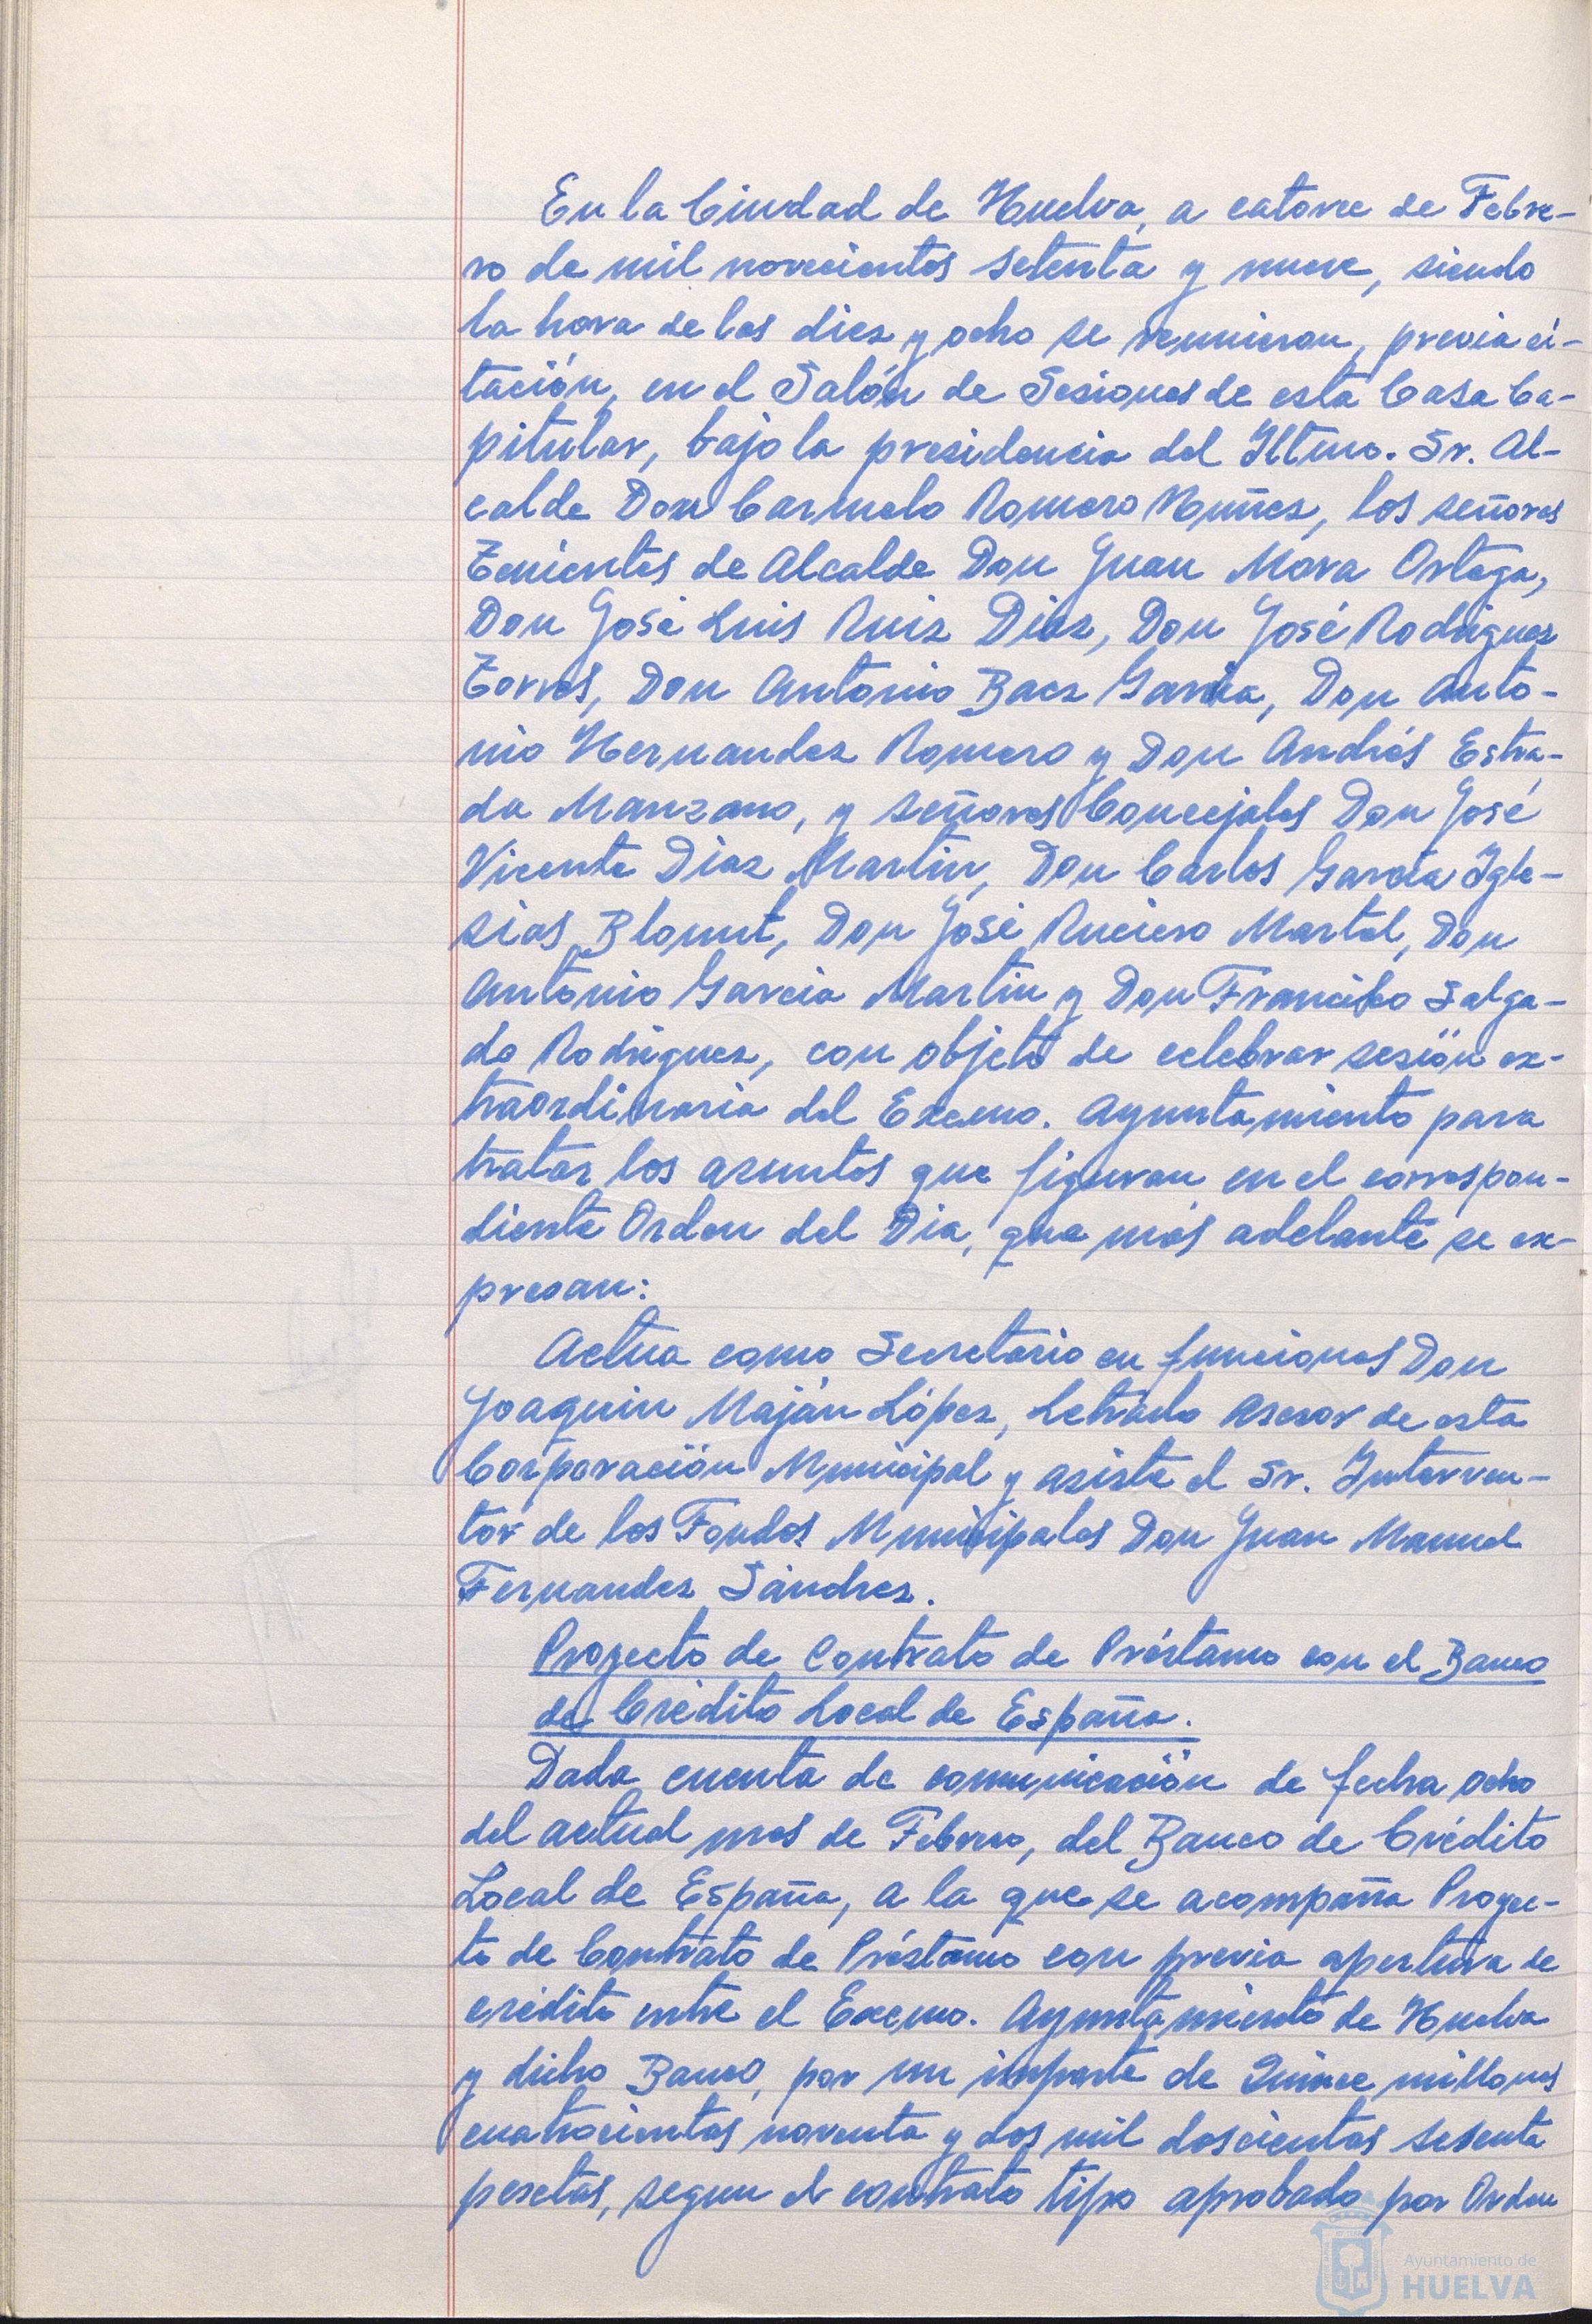 En la Ciudad de Huelva, a catorce de Febre-
ro de mil novecientos setenta y nueve, siendo
la hora de las diez y ocho se reunieron, previa ci-
tación, en el Salón de Sesiones de esta Casa Ca-
pitular, bajo la presidencia del Iltmo. Sr. Al-
calde Don Carmelo Romero Nuñez, los señores
Tenientes de Alcalde Don Juan Mora Ortega,
Don José Luis Ruiz Diaz, Don José Rodriguez
Torres, Don Antonio Baez Garcia, Don Anto-
nio Hernandez Romero y Don Andrés Estra-
da Manzano, y señores Concejales Don José
Vicente Diaz Martin, Don Carlos García Igle-
sias Blount, Don José Ruciero Martel, Don
Antonio Garcia Martin y Don Francisco Salga-
do Rodriguez, con objeto de celebrar sesión ex-
traordinaria del Excmo. Ayuntamiento para
tratar los asuntos que figuran en el correspon-
diente Orden del Dia, que más adelante se ex-
presan:
Actua como Secretario en funciones Don
Joaquin Maján López, Letrado Asesor de esta
Corporación Municipal y asiste el Sr. Interven-
tor de los Fondos Municipales Don Juan Manuel
Fernandez Sánchez.
Proyecto de Contrato de Préstamo con el Banco
de Crédito Local de España.
Dada cuenta de comunicación de fecha ocho
del actual mes de Febrero, del Banco de Crédito
Local de España, a la que se acompaña Proyec-
to de Contrato de Préstamo con previa apertura de
crédito entre el Excmo. Ayuntamiento de Huelva
y dicho Banco, por un importe de Quince millones
cuatrocientas noventa y dos mil doscientas sesenta
pesetas, segun el contrato tipo aprobado por Orden
Ayuntamiento de
HUELVA